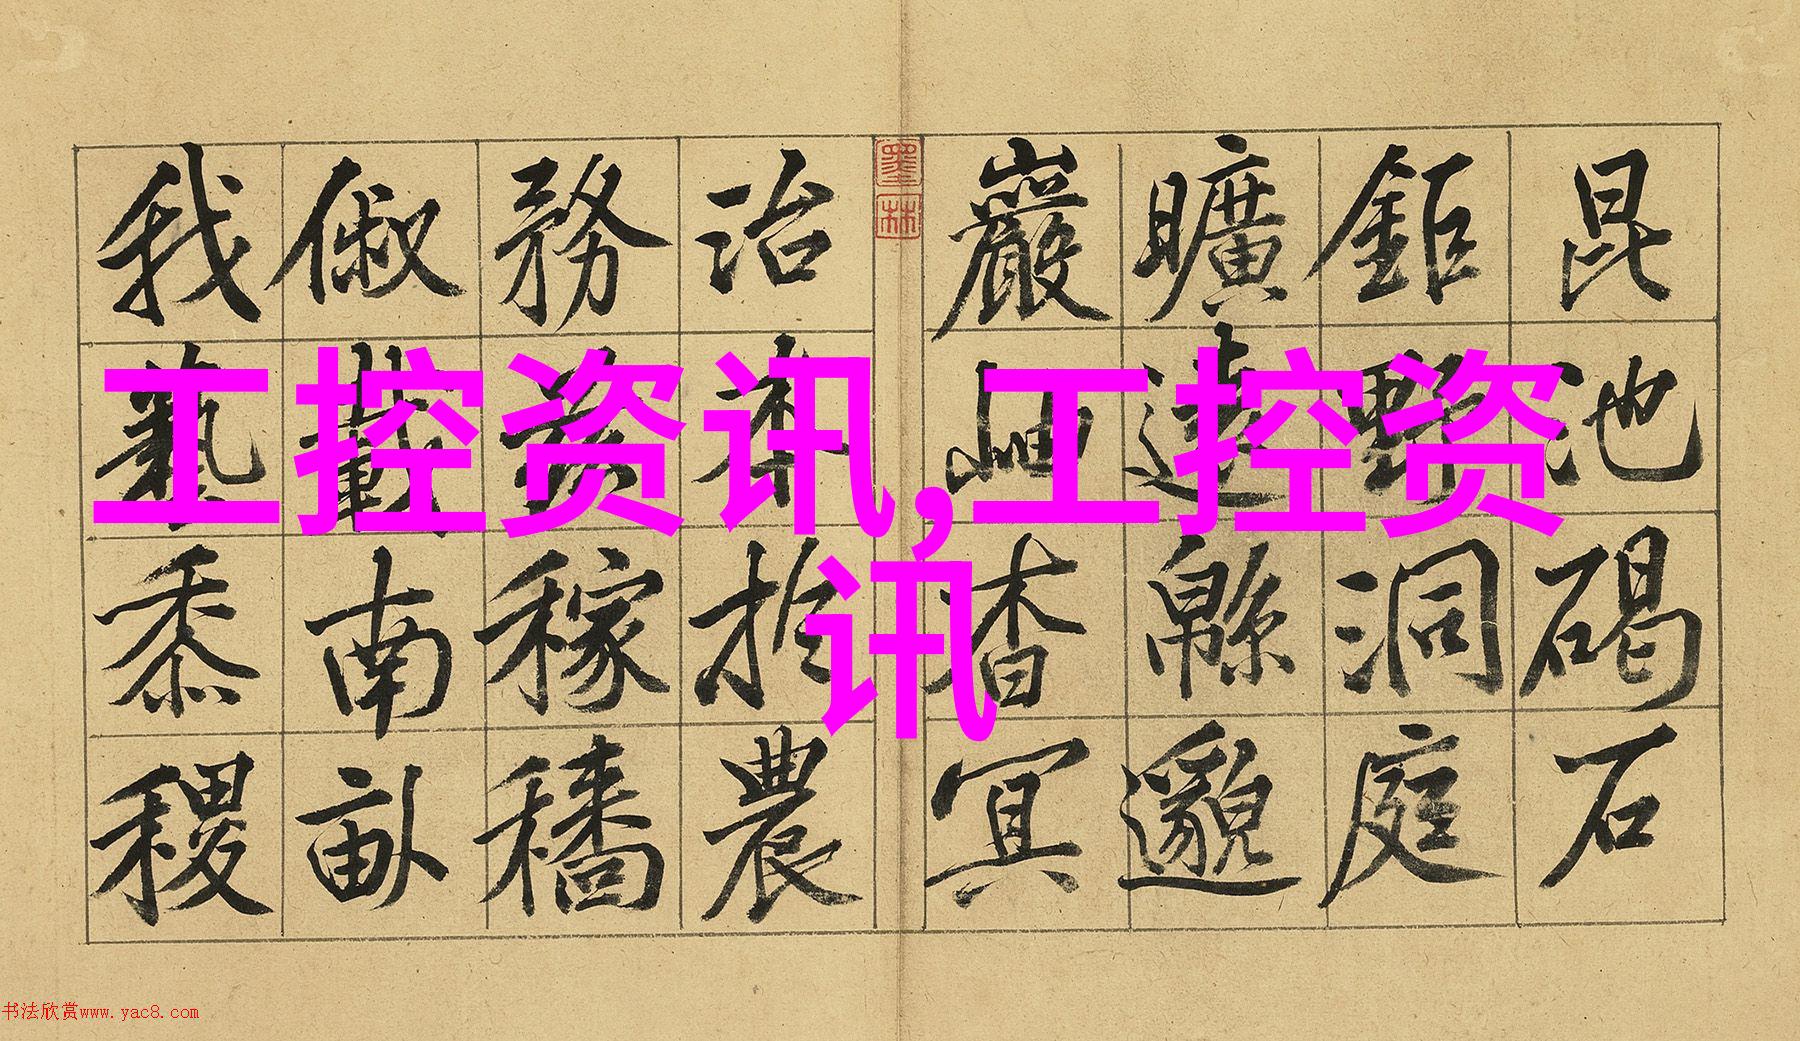 昆池碣石
鉅野洞庭
曠遠緜邈
巖岫杳冥
墨林
治本於農
務茲稼穡
俶載南畝
我藝黍稷
工控资讯,工控资
讯
书法欣赏www.yac8.com